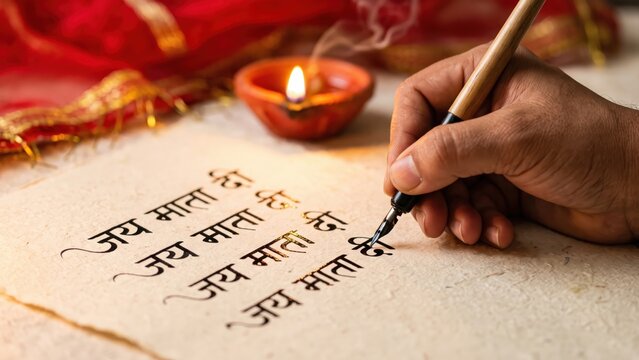 जय माता दी
जय माता दी
जय माता दी
जय माता दी